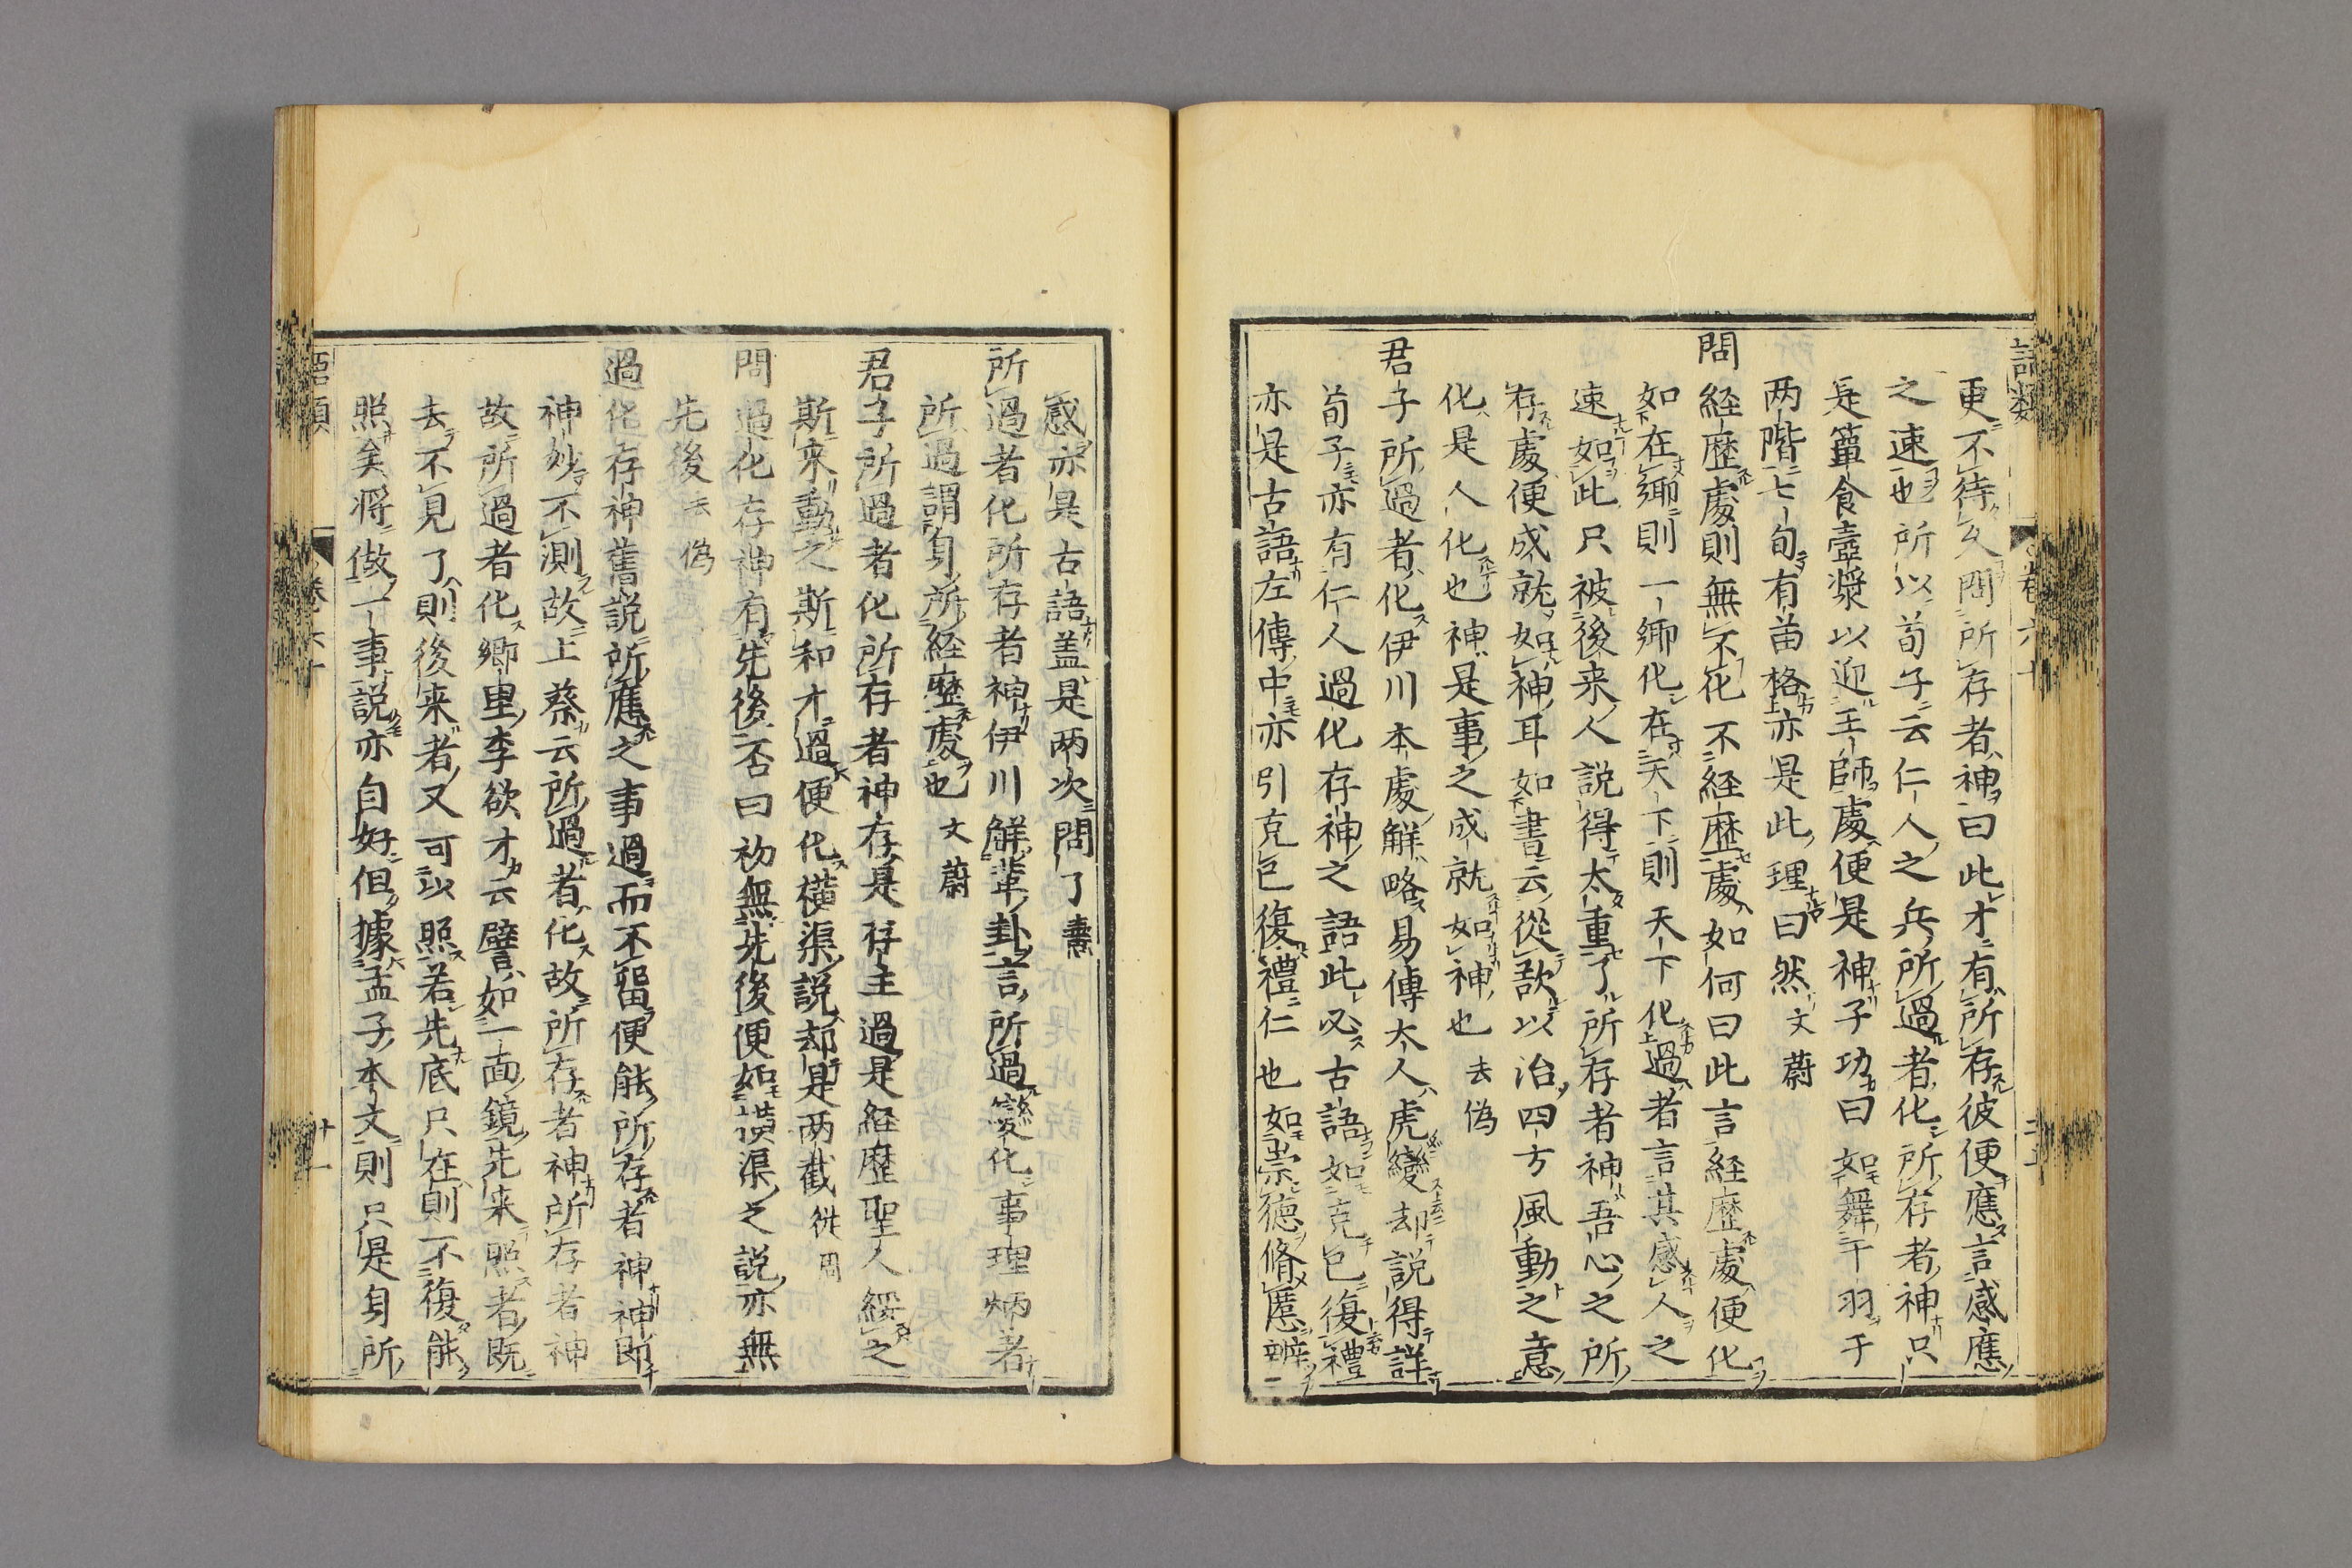 語類
卷六十
更不待久問所存者神曰此才有所存彼便應言感應
之速也所以荀子云仁人之兵所過者化所存者神只
是簞食壺漿以迎王師處便是神子功曰如舞干羽于
两階七旬有苗格亦是此理曰然文蔚
問経歷處則無不化不経歷處如何曰此言経歷處便化
如在鄉則一鄉化在天下則天下化過者言其感人之
速如此只被後来人説得太重了所存者神吾心之所
存處便成就如神耳如書云從欲以治四方風動之意
化是人化也神是事之成就如神也去偽
君子所過者化伊川本處解略易傳大人虎變却説得詳
荀子亦有仁人過化存神之語此必古語如克己復禮
亦是古語左傳中亦引克己復禮仁也如崇德修慝辨
感亦是古語盖是两次問了燾
所過者化所存者神伊川解革卦言所過變化事理炳著
所過謂身所経歷處也文蔚
君子所過者化所存者神存是存主過是経歷聖人綏之
斯來動之斯和才過便化橫渠説却是两截從周
問過化存神有先後否曰初無先後便如橫渠之説亦無
先後去偽
過化存神舊説所應之事過而不留便能所存者神神即
神妙不測故上蔡云所過者化故所存者神所存者神
故所過者化鄉里李欲才云譬如一面鏡先来照者既
去不見了則後来者又可以照若先底只在則不復能
照矣將做一事説亦自好但據孟子本文則只是身所
語類
卷六十
十一